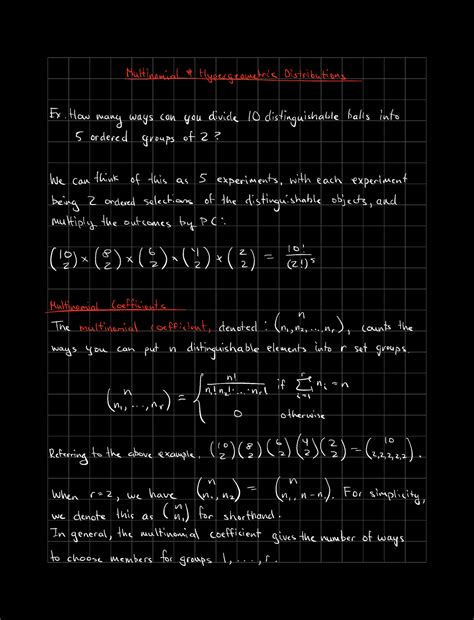 Multinomial & Hypergeometric Distributions
Ex. How many ways can you divide 10 distinguishable balls into
5 ordered groups of 2?
We can think of this as 5 experiments, with each experiment
being 2 ordered selections of the distinguishable objects, and
multiply the outcomes by PC:
(10 2) × (8 2) × (6 2) × (4 2) × (2 2) = 10! / (2!)^5
Multinomial Coefficients
The multinomial coefficient, denoted: (n n₁, n₂, ..., nᵣ), counts the
ways you can put n distinguishable elements into r set groups.
(n n₁, ..., nᵣ) = { n! / n₁! n₂! ... nᵣ! if Σ_{i=1}^{r} nᵢ = n
0 otherwise
Referring to the above example, (10 2)(8 2)(6 2)(4 2)(2 2) = (10 2,2,2,2,2).
When r=2, we have (n n₁, n₂) = (n n₁, n-n₁). For simplicity,
we denote this as (n n₁) for shorthand.
In general, the multinomial coefficient gives the number of ways
to choose members for groups 1, ..., r.